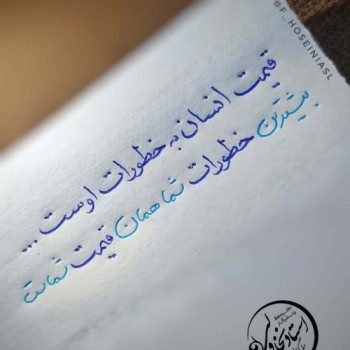 قیمت انسان به خطورات اوست ...
بیشترین خطورات شما همان قیمت شماست
@F_HOSEINIASL